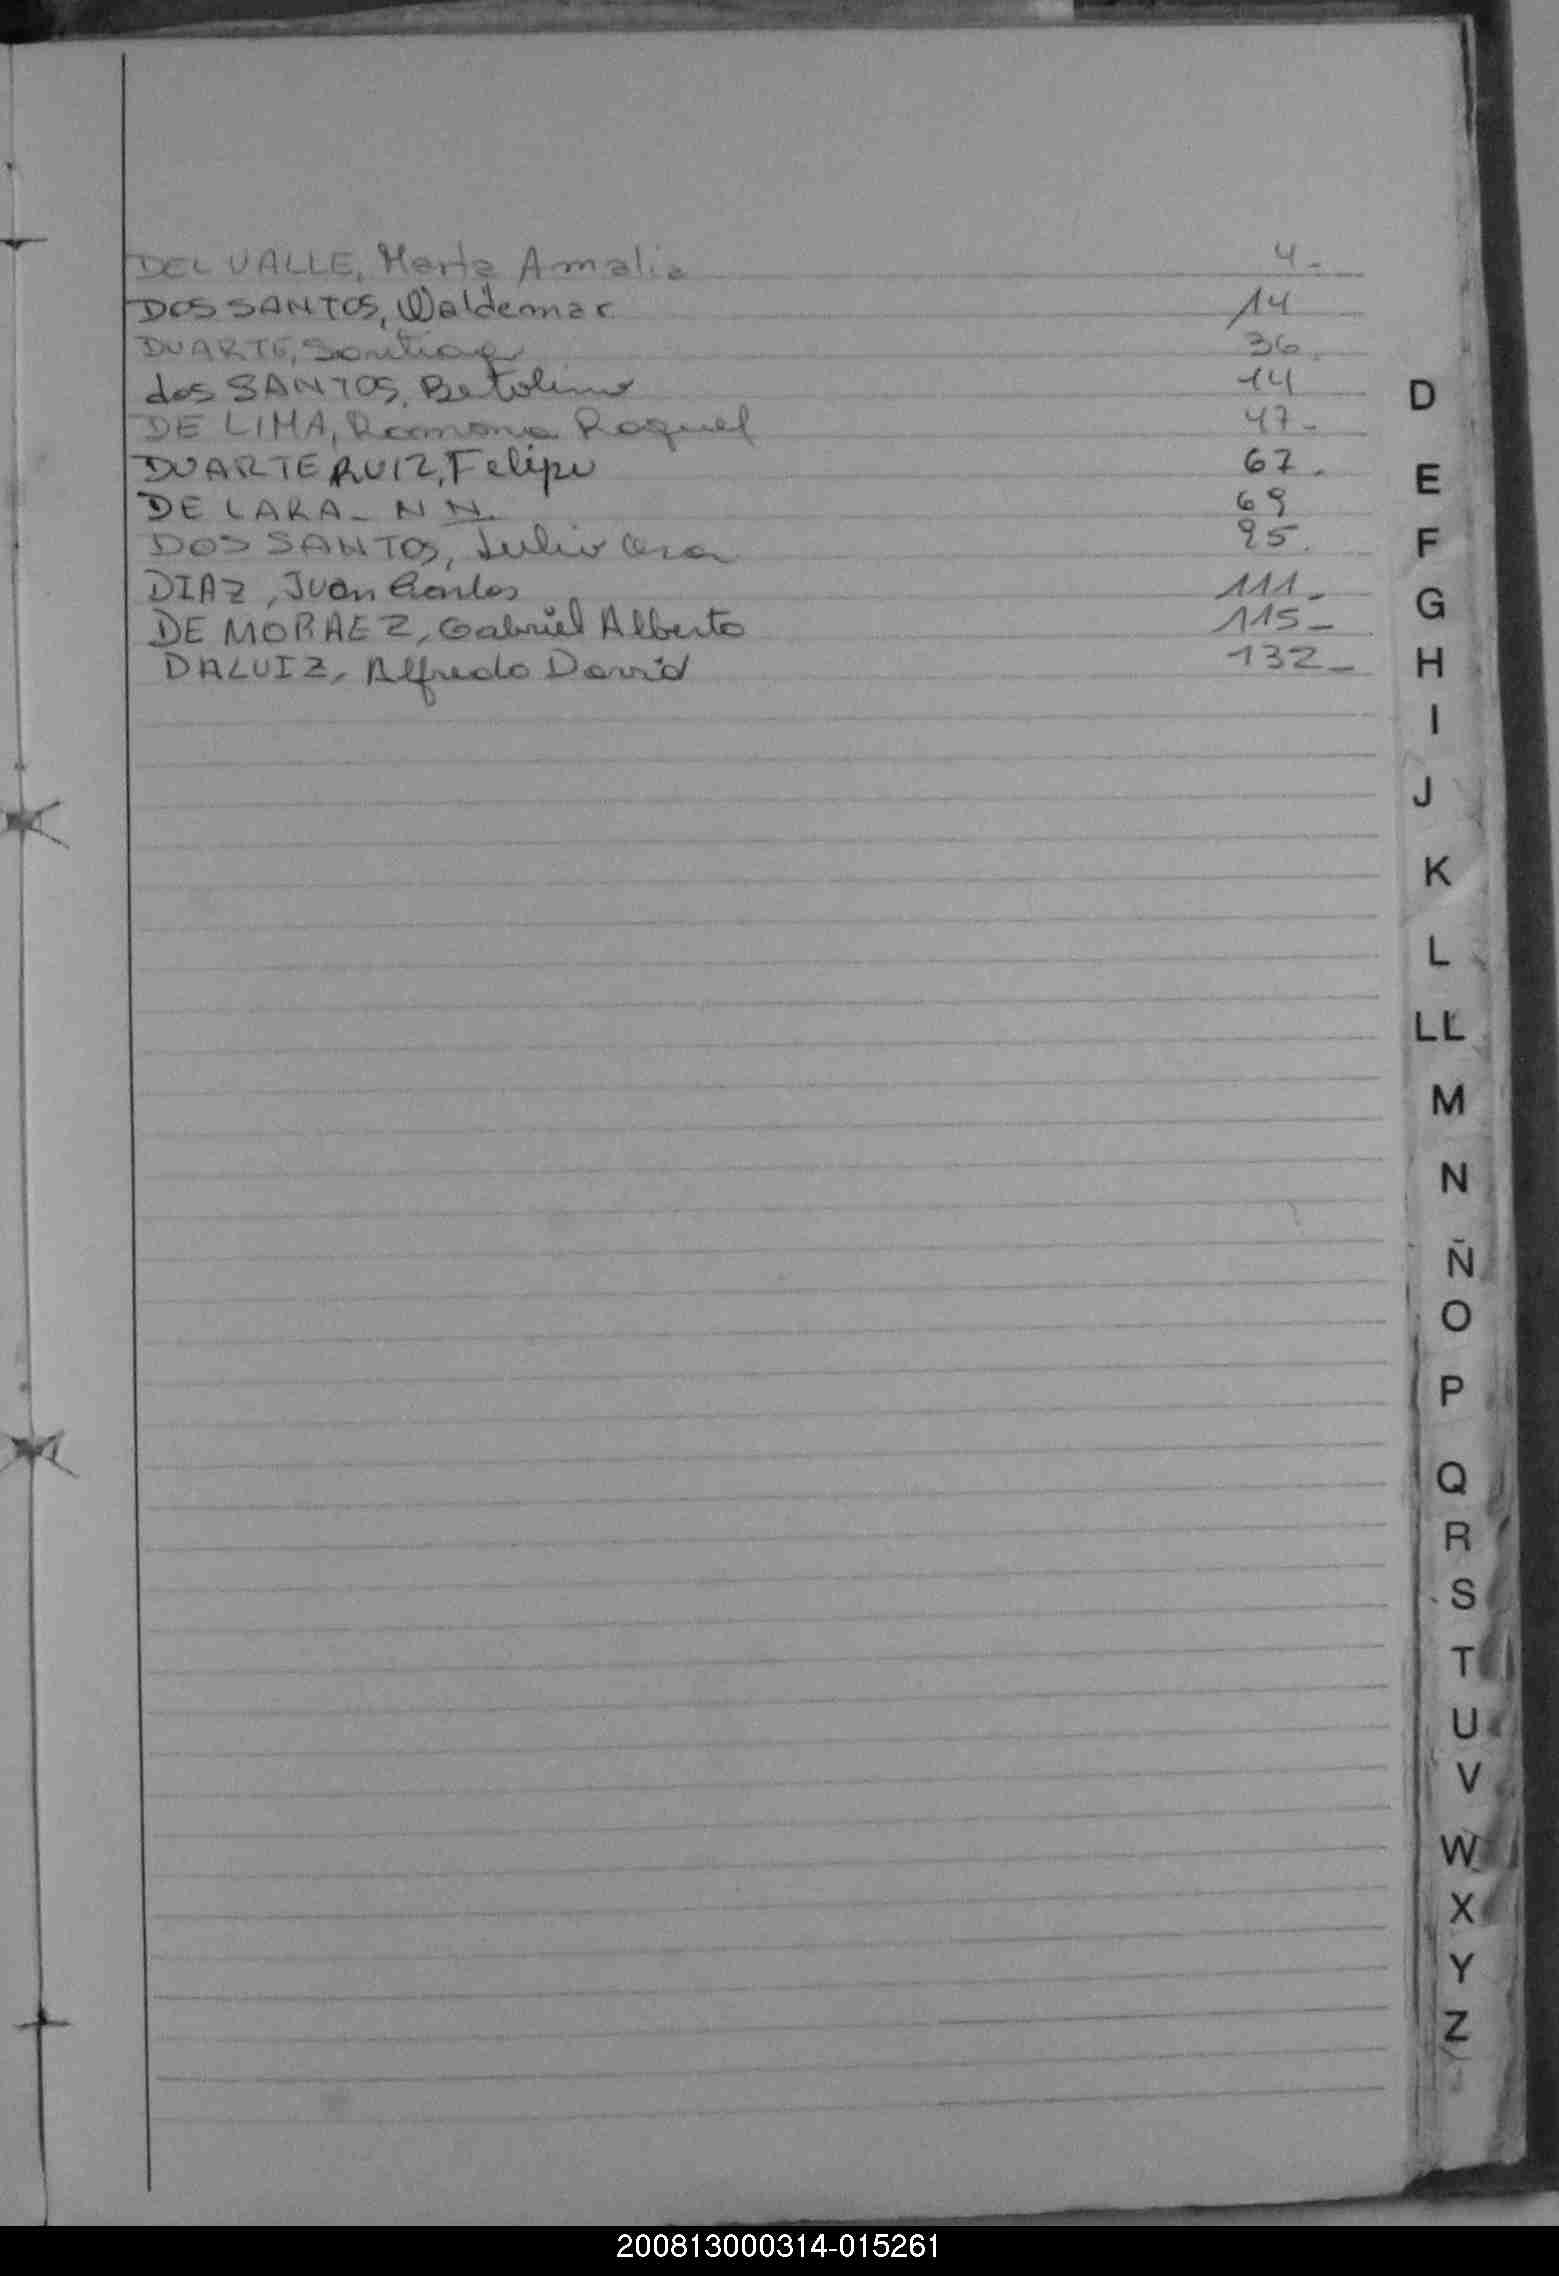 DEL VALLE, Marta Amalia 4-
DOS SANTOS, Waldemar 14
DUARTE, Santiago 36.
dos SANTOS, Betolino 14
DE LIMA, Ramona Raquel 47-
DUARTE RUIZ, Felipe 67.
DE LARA - N N. 69
DOS SANTOS, Julio 95.
DIAZ, Juan Carlos 111-
DE MORAEZ, Gabriel Alberto 115-
DALUIZ, Alfredo David 132-
D
E
F
G
H
I
J
K
L
LL
M
N
Ñ
O
P
Q
R
S
T
U
V
W
X
Y
Z
200813000314-015261